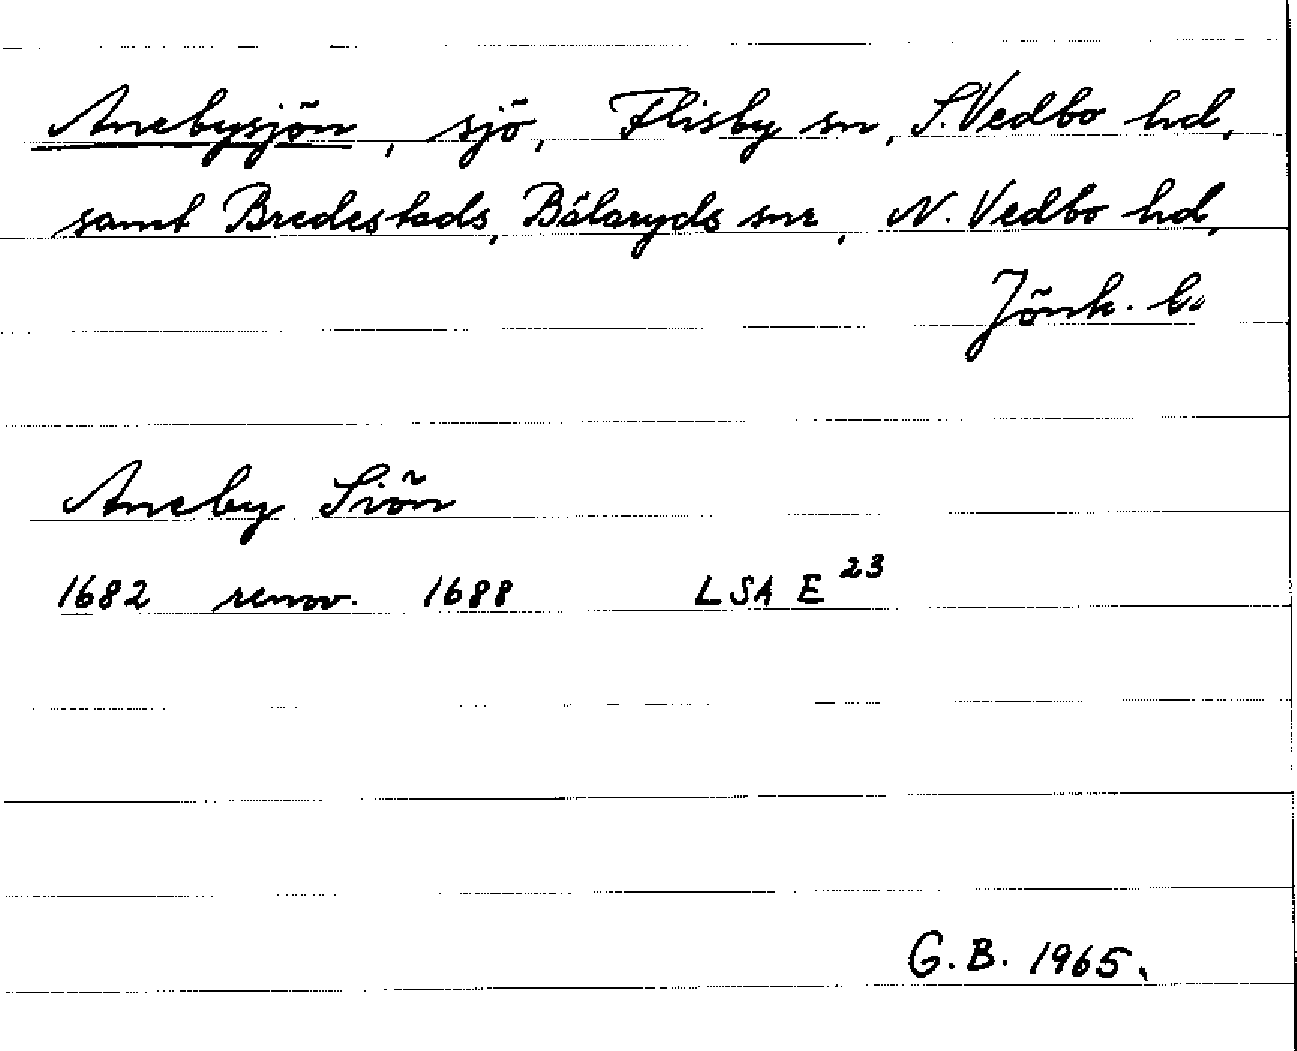 Anebysjön, sjö, Flisby sn, S. Vedbo hd,
samt Bredestads, Bälaryds snr, N. Vedbo hd,
Jönk. l.
Aneby Siön
1682 renov. 1688 LSA E 23
G. B. 1965.